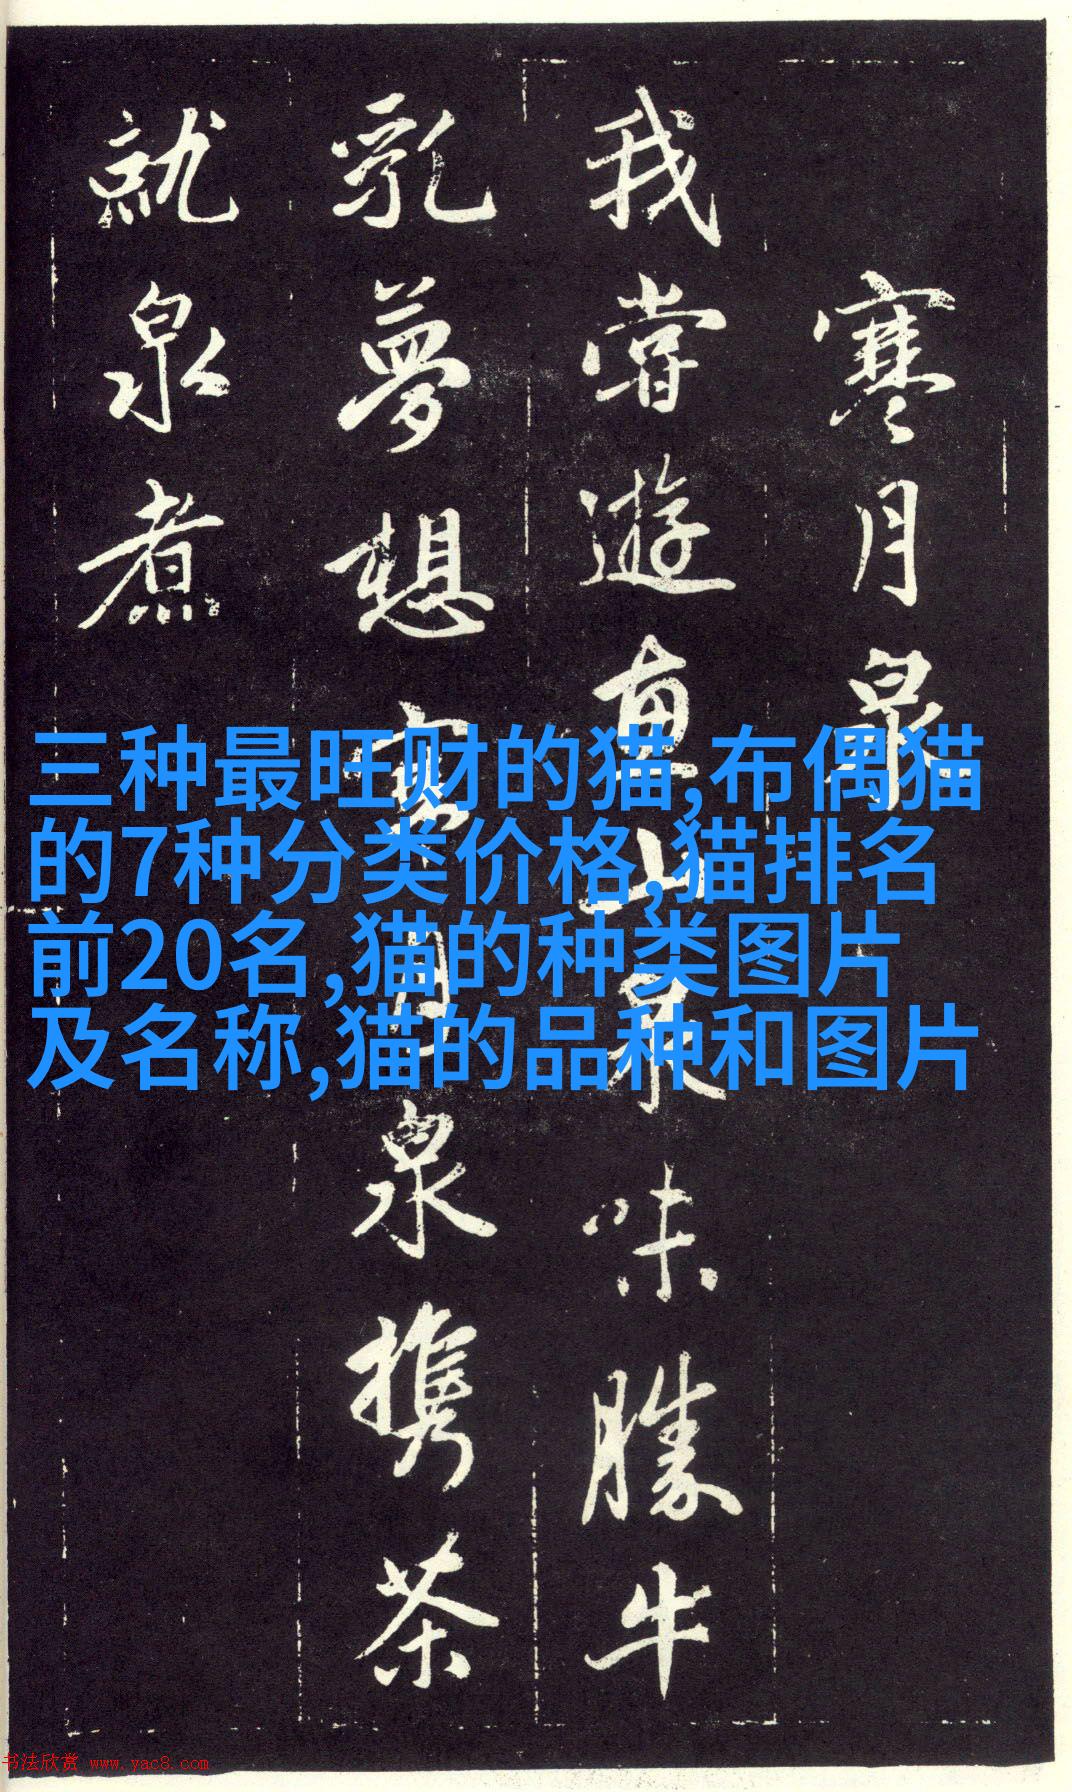 寒月泉
我嘗遊惠山泉味勝牛
乳夢想寒月泉携茶
就泉煮
三种最旺财的猫,布偶猫
的7种分类价格,猫排名
前20名,猫的种类图片
及名称,猫的品种和图片
书法欣赏 www.yac8.com